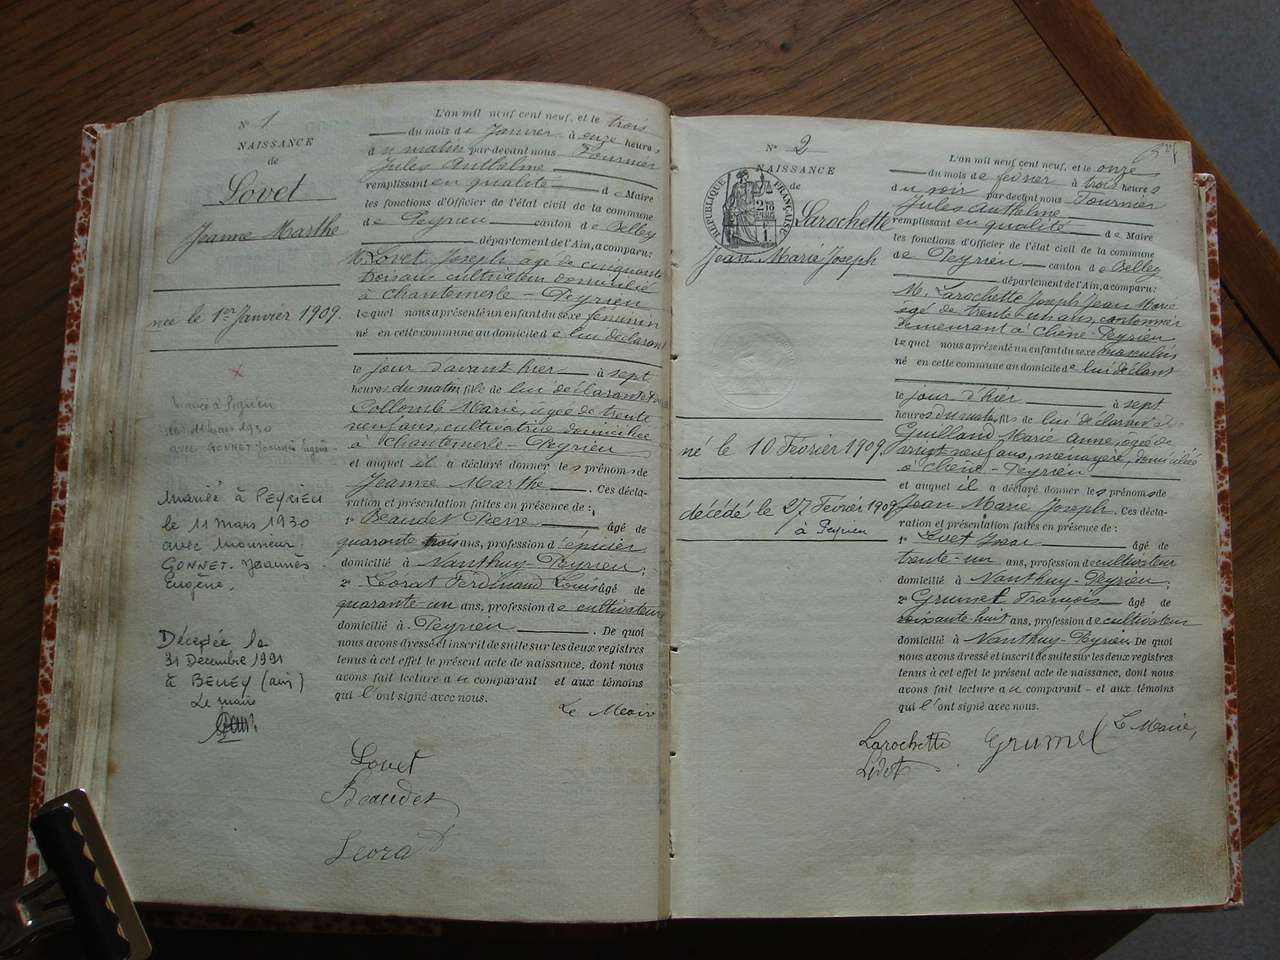 N° 1
NAISSANCE
de
Lovet
Jeanne Marthe
née le 1er Janvier 1909.
mariée à Peyrieu
le 11 mars 1930
avec GONNET Joannès Eugène
Mariée à PEYRIEU
le 11 mars 1930
avec Monsieur
GONNET. Joannès
Eugène.
Décédée le
31 Decembre 1991
à BELLEY (ain)
Le maire
L'an mil neuf cent neuf, et le trois
du mois de Janvier à onze heures
du matin par-devant nous Fournier
Jules Anthelme
remplissant en qualité de Maire
les fonctions d'Officier de l'état civil de la commune
de Peyrieu canton de Belley
département de l'Ain, a comparu:
M. Lovet Joseph agé de cinquante
trois ans cultivateur domicilié
à Chantemerle - Peyrieu
lequel nous a présenté un enfant du sexe féminin
né en cette commune au domicile de lui déclarant
le jour d'avant hier à sept
heures du matin, fille de lui déclarant et de
Collomb Marie, agée de trente
neuf ans, cultivatrice domiciliée
à Chantemerle - Peyrieu
et auquel il a déclaré donner les prénoms de
Jeanne Marthe. Ces décla-
ration et présentation faites en présence de:
1° Beaudet Pierre âgé de
quarante trois ans, profession d'épicier
domicilié à Nanthuy-Peyrieu;
2° Lorat Ferdinand Louis âgé de
quarante-un ans, profession de cultivateur
domicilié à Peyrieu. De quoi
nous avons dressé et inscrit de suite sur les deux registres
tenus à cet effet le présent acte de naissance, dont nous
avons fait lecture au comparant et aux témoins
qui l'ont signé avec nous.
Le Maire
Lovet
Beaudet
N° 2
NAISSANCE
de
RÉPUBLIQUE FRANÇAISE
Larochette
Jean Marie Joseph
né le 10 Février 1909.
décédé le 27 Février 1909
à Peyrieu
L'an mil neuf cent neuf, et le onze
du mois de février à trois heures
du soir par-devant nous Fournier
Jules Anthelme
remplissant en qualité de Maire
les fonctions d'Officier de l'état civil de la commune
de Peyrieu canton de Belley
département de l'Ain, a comparu:
M. Larochette Joseph Jean Marie
âgé de trente-un ans, cantonnier
demeurant à Chêne-Peyrieu
lequel nous a présenté un enfant du sexe masculin
né en cette commune au domicile de lui déclarant
le jour d'hier à sept
heures du matin, fils de lui déclarant et de
Guilland Marie Anne, agée de
vingt neuf ans, menagère, domiciliée
à Chêne-Peyrieu
et auquel il a déclaré donner les prénoms de
Jean Marie Joseph. Ces décla-
ration et présentation faites en présence de:
1° Livet âgé de
trente-un ans, profession de cultivateur
domicilié à Nanthuy-Peyrieu;
2° Grumel François âgé de
soixante huit ans, profession de cultivateur
domicilié à Nanthuy-Peyrieu De quoi
nous avons dressé et inscrit de suite sur les deux registres
tenus à cet effet le présent acte de naissance, dont nous
avons fait lecture au comparant - et aux témoins
qui l'ont signé avec nous.
Le Maire,
Larochette Grumel
Livet